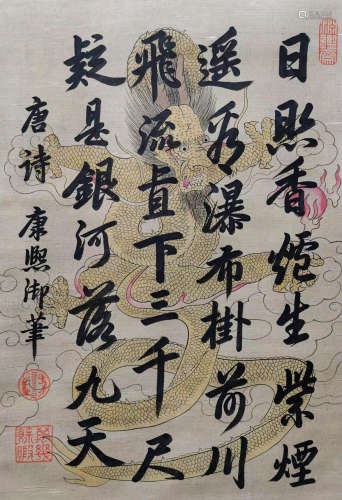 日照香爐生紫煙
遙看瀑布掛前川
飛流直下三千尺
疑是銀河落九天
唐詩 康熙御筆